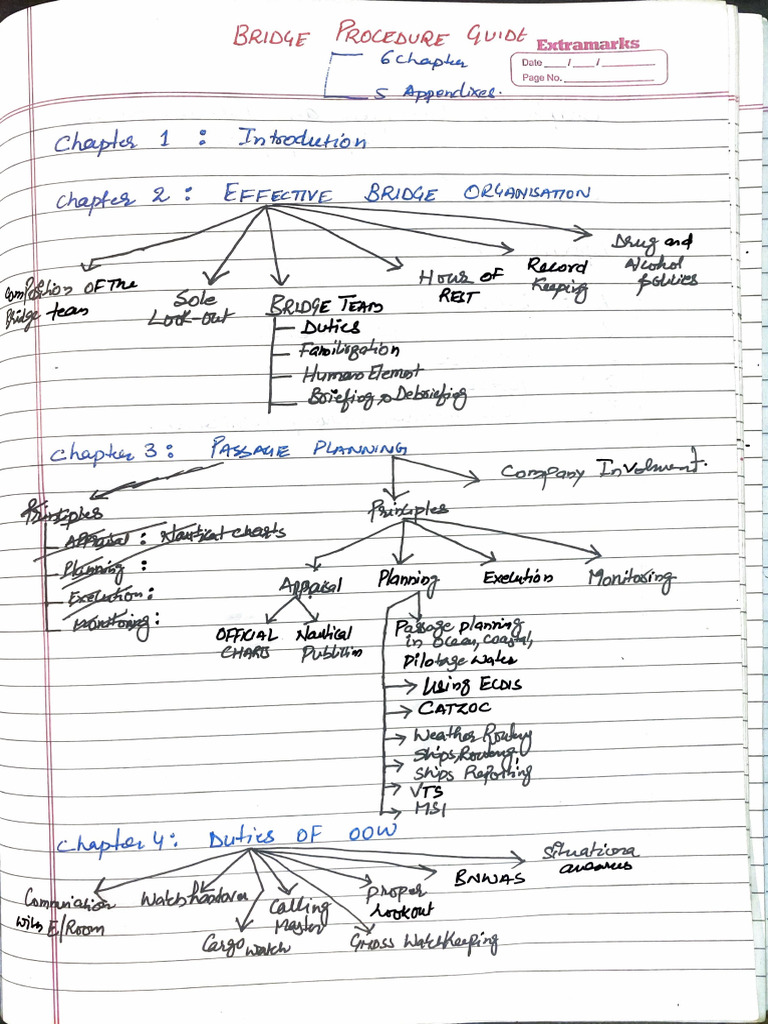 BRIDGE PROCEDURE GUIDE
Extramarks
Date ___ / ___ / ______
Page No. ______
6 Chapter
5 Appendixes.
Chapter 1 : Introdution
Chapter 2 : EFFECTIVE BRIDGE ORGANISATION
Composition OF The
Bridge team
Sole
LOOK-OUT
BRIDGE TEAM
Duties
Familirization
Human Element
Briefing & Debriefing
Hour OF
REST
Record
Keeping
Drug and
Alcohol
policies
Chapter 3 : PASSAGE PLANNING
Company Involment.
Principles
Appraisal : Nautical charts
Planning :
Execution :
Monitoring :
Principles
Appraisal
Planning
Execution
Monitoring
OFFICIAL
CHARTS
Nautical
Passage planning
in Ocean, coastal,
Pilotage water
Using ECDIS
CATZOC
Weather Routing
Ships, Routing,
Ships Reporting
VTS
MSI
Chapter 4 : Duties OF OOW
Communiation
with E/Room
Watch handover
Cargo watch
Calling
Master
GMDSS WatchKeeping
Proper
Lookout
BNWAS
Situationa